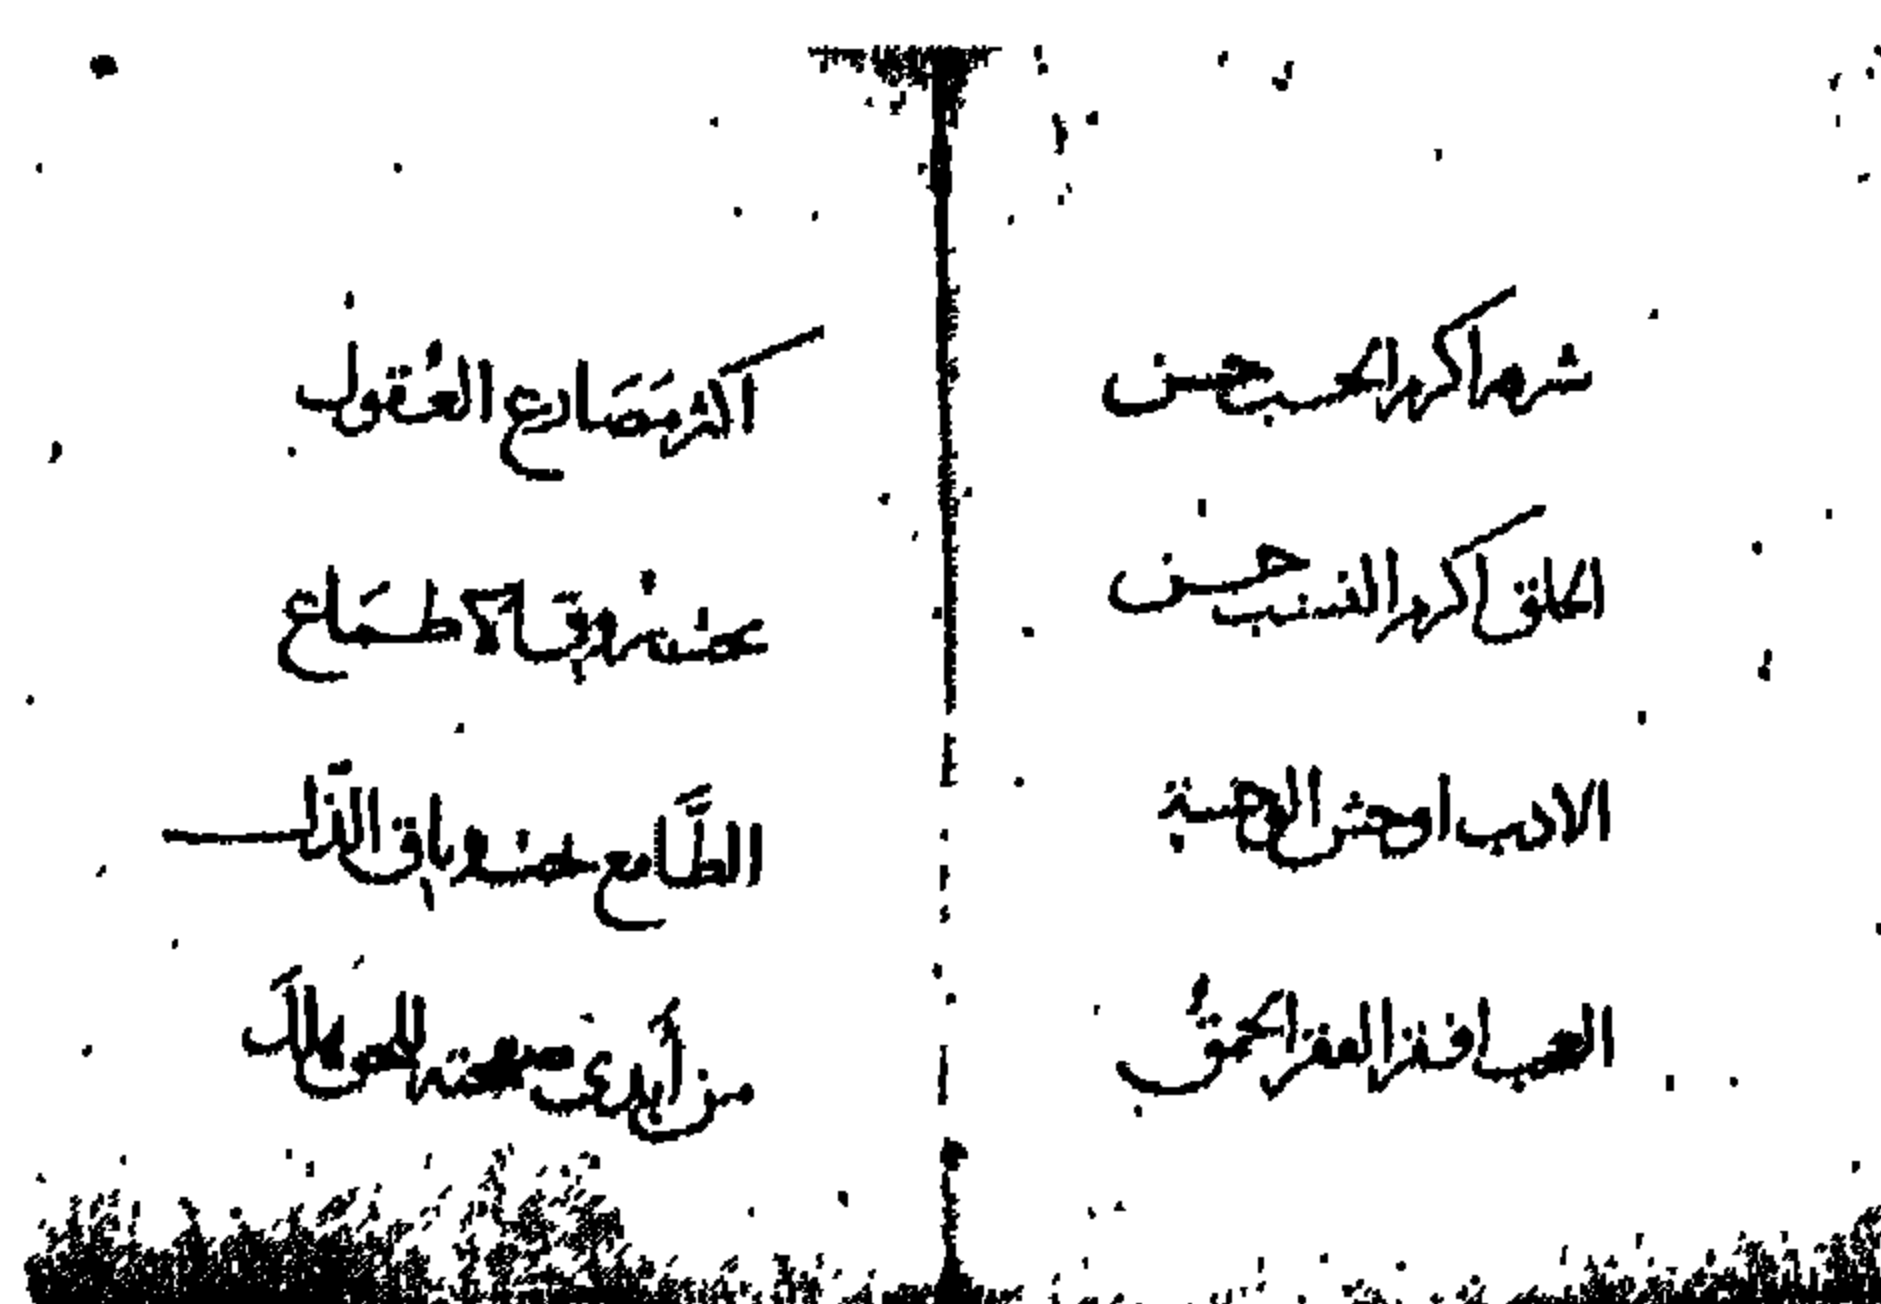 شرهم اكرم الحسب حسن
الخلق اكرم النسب حسن
الادب اوحش الوحشة
العجب افقر الفقر الحمق
اكثر مَصَارع العُقول
بروق الاطمَاع
الطَّامع وثاق الذّل
من أبدى صفحته للحق هلك